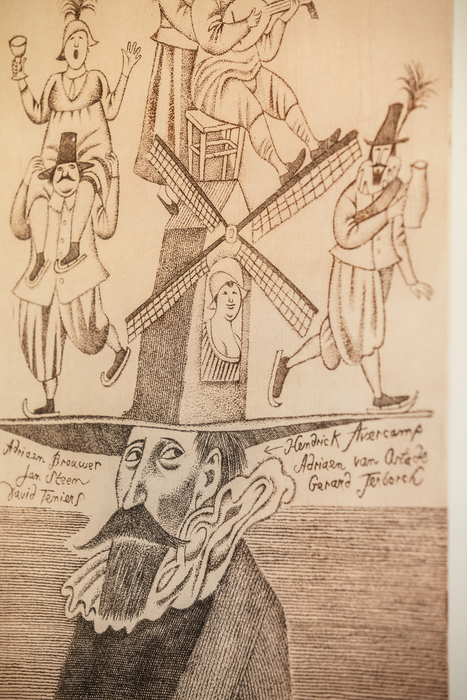 Adriaen Brouwer
Jan Steen
David Teniers
← Hendrick Avercamp
Adriaen van Ostade
Gerard Terborch